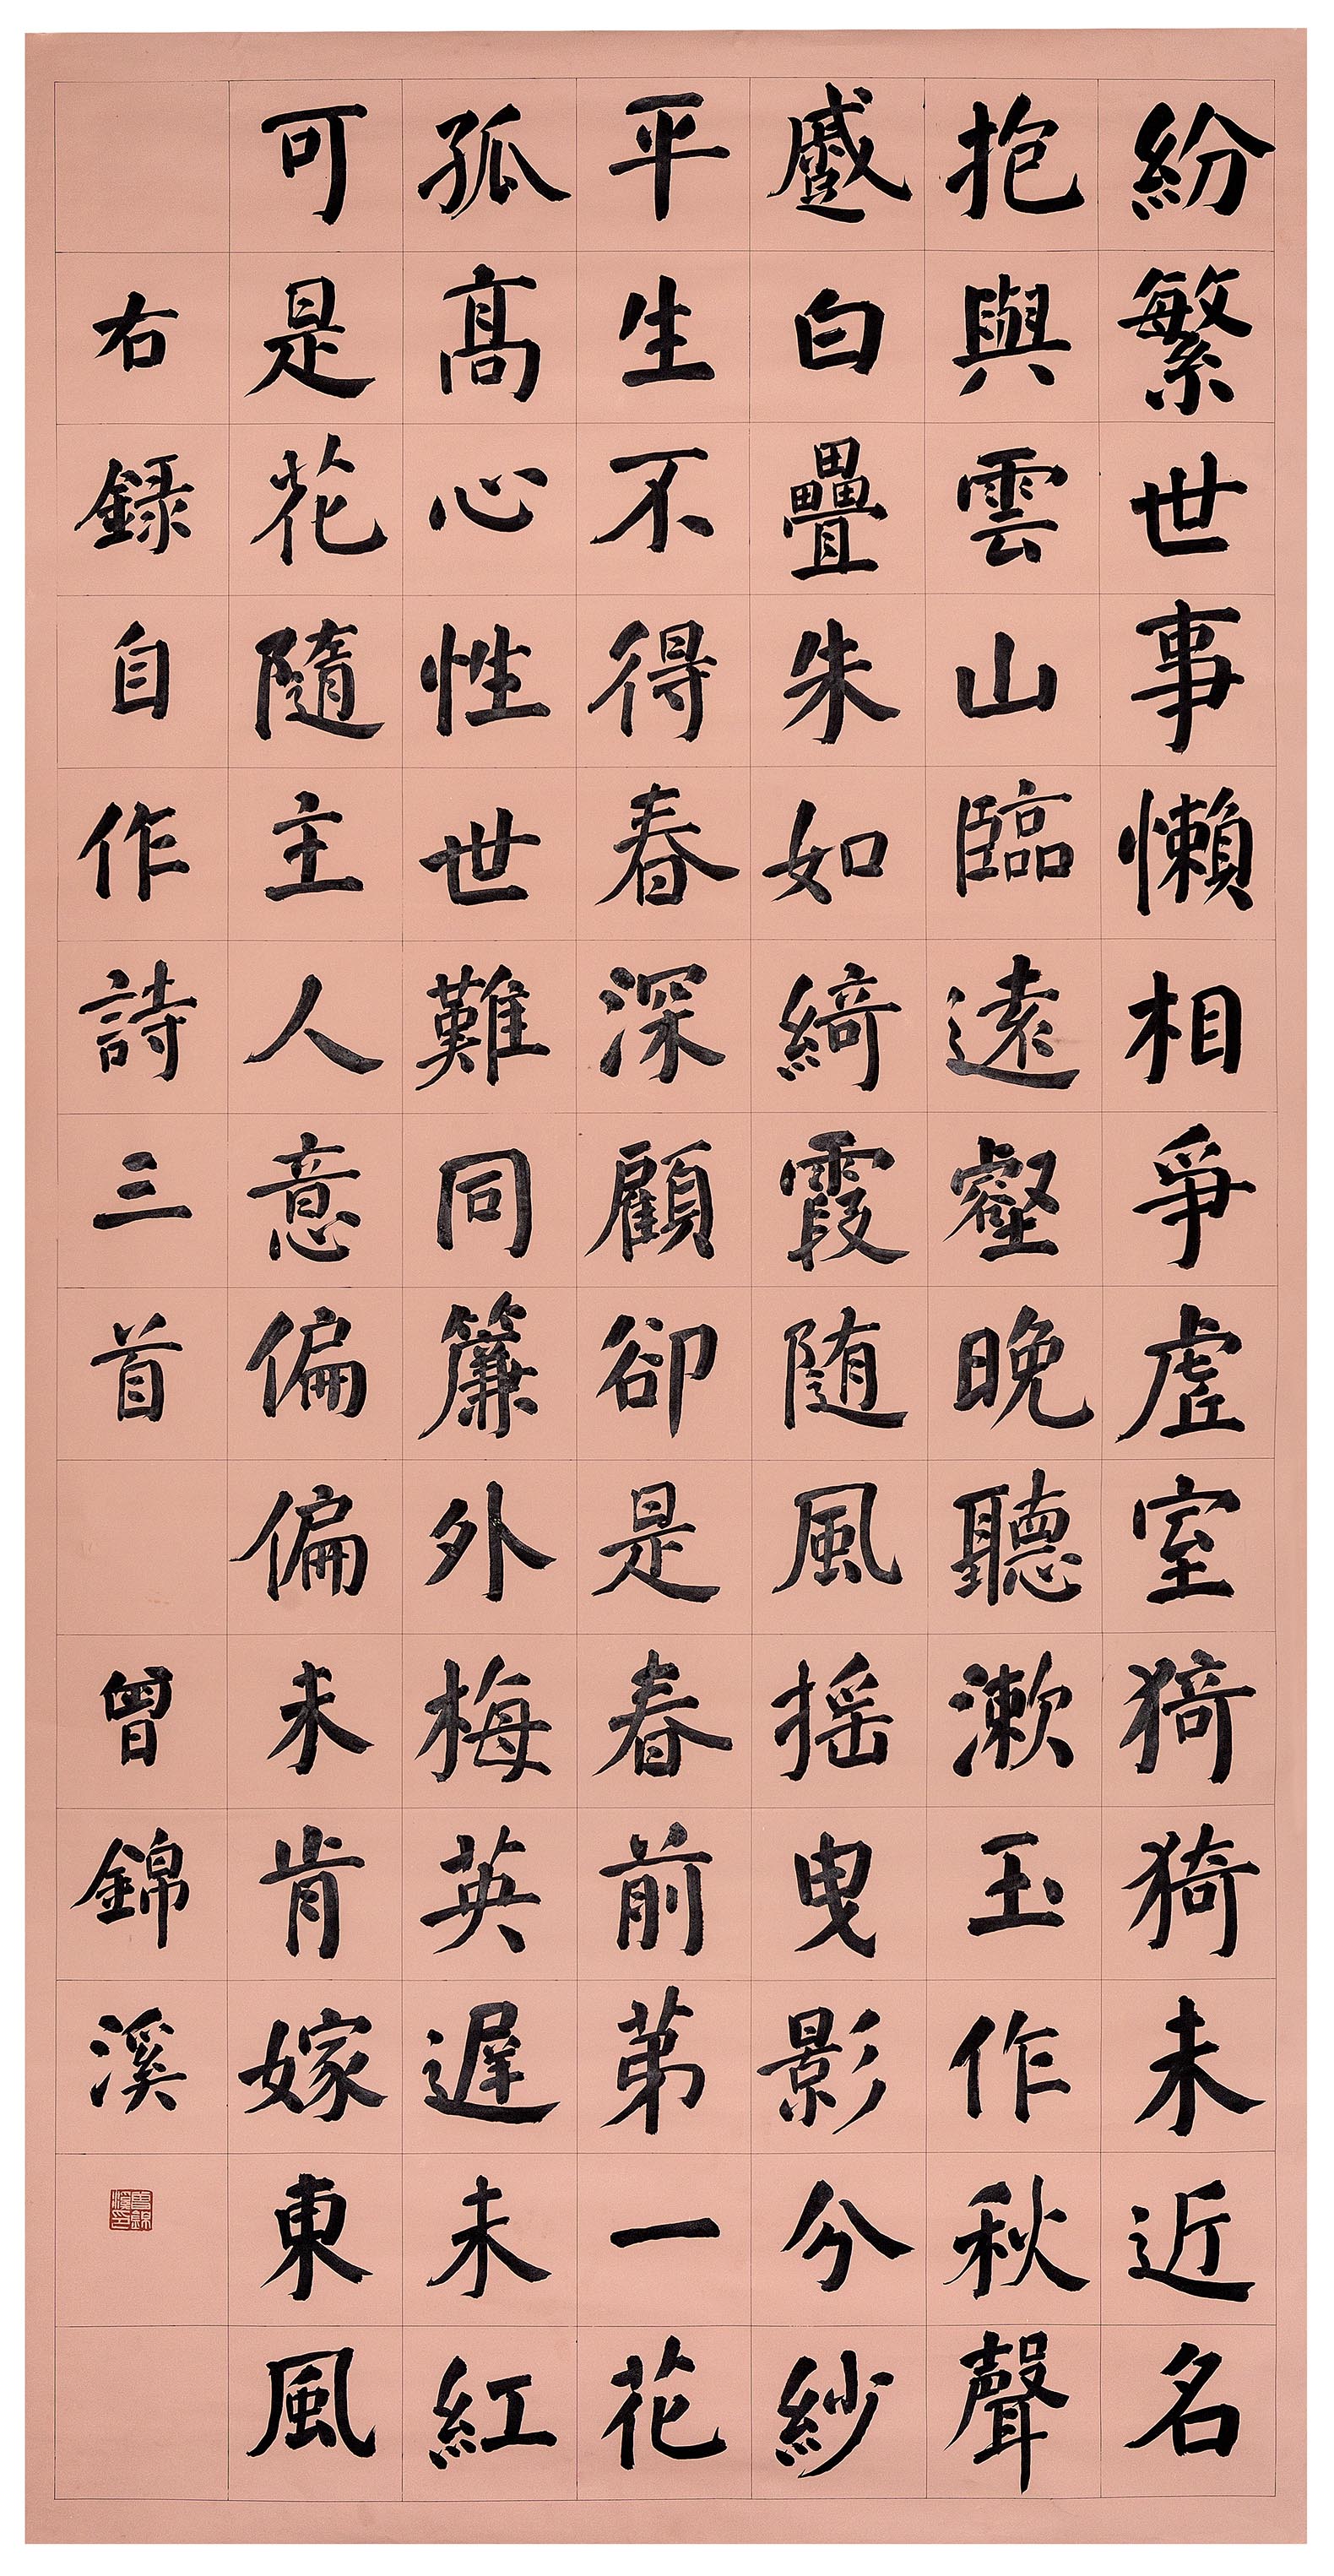 紛繁世事懶相爭虛室猗猗未近名
抱與雲山臨遠壑晚聽漱玉作秋聲
蹙白疊朱如綺霞随風摇曳影分紗
平生不得春深顧卻是春前第一花
孤高心性世難同簾外梅英遲未紅
可是花隨主人意偏偏未肯嫁東風
右録自作詩三首 曾錦溪
曾錦溪印